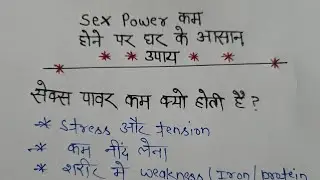 Sex Power कम
होने पर घर के आसान
* * उपाय * *
* *
सेक्स पावर कम क्यो होती है ?
* stress और tension
* कम नींद लेना
* शरीर मे weakness/Iron/protein